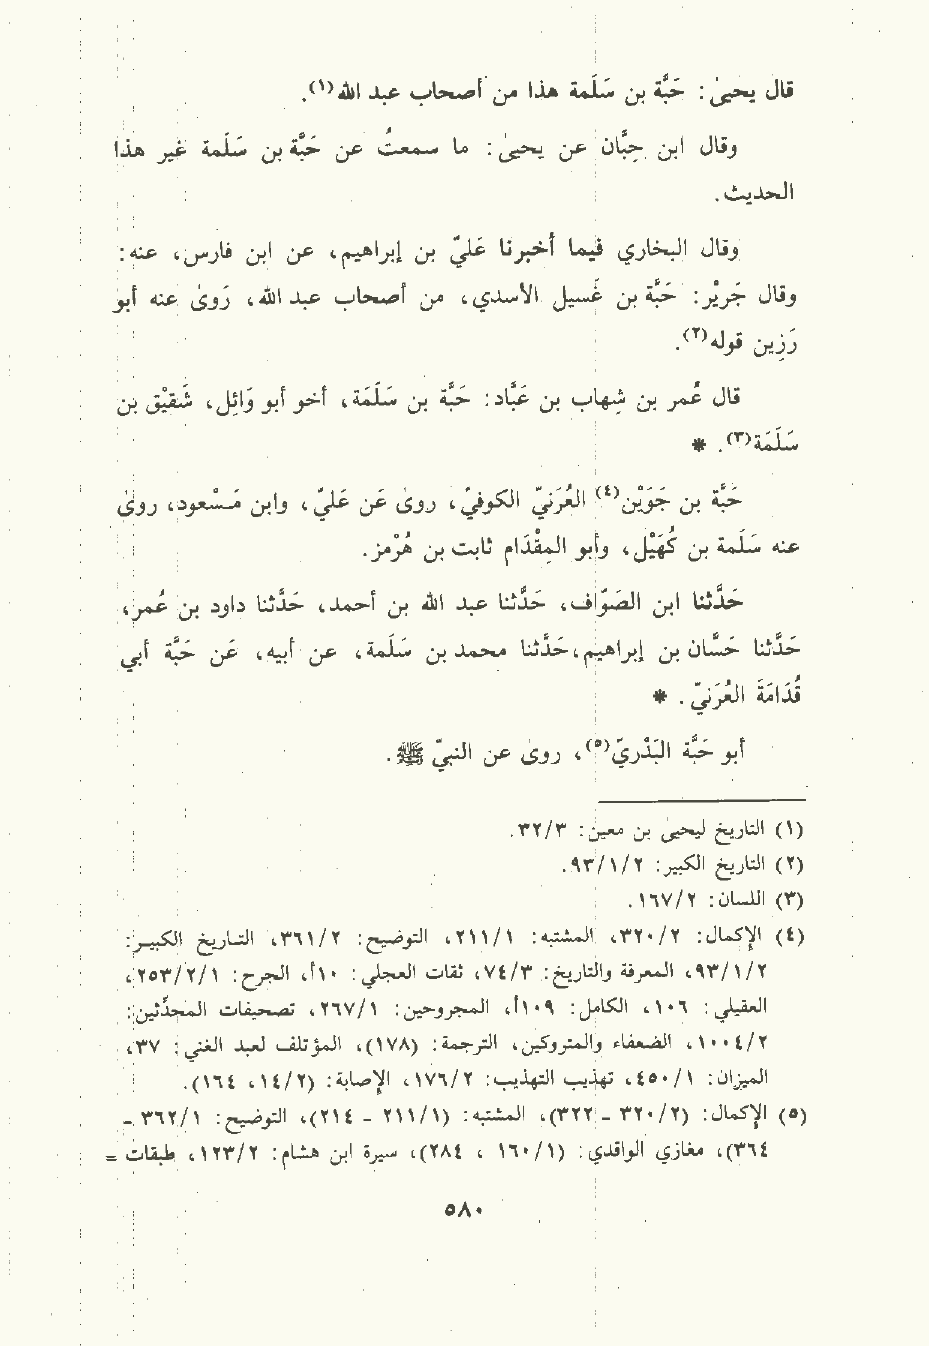 قال يحيىٰ: حَبَّة بن سَلَمة هذا من أصحاب عبد الله(١).
وقال ابن حِبَّان عن يحيىٰ: ما سمعتُ عن حَبَّة بن سَلَمة غير هذا
الحديث.
وقال البخاري فيما أخبرنا عَليّ بن إبراهيم، عن ابن فارس، عنه:
وقال جَريْر: حَبَّة بن غَسيل الأسدي، من أصحاب عبد الله، رَوىٰ عنه أبو
رَزِين قوله(٢).
قال عُمر بن شِهاب بن عَبَّاد: حَبَّة بن سَلَمَة، أخو أبو وَائِل، شَقيْق بن
سَلَمَة(٣). *
حَبَّة بن جَوَيْن(٤) العُرَنيّ الكوفيّ، روىٰ عَن عَليّ، وابن مَسْعود، روىٰ
عنه سَلَمة بن كُهَيْل، وأبو المِقْدَام ثابت بن هُرْمز.
حَدَّثنا ابن الصَوّاف، حَدَّثنا عبد الله بن أحمد، حَدَّثنا داود بن عُمر،
حَدَّثنا حَسَّان بن إبراهيم، حَدَّثنا محمد بن سَلَمة، عن أبيه، عَن حَبَّة أبي
قُدَامَةَ العُرَنيّ. *
أبو حَبَّة البَدْريّ(٥)، روىٰ عن النبيّ ﷺ.
(١) التاريخ ليحيىٰ بن معين: ٣٢/٣.
(٢) التاريخ الكبير: ٩٣/١/٢.
(٣) اللسان: ١٦٧/٢.
(٤) الإكمال: ٣٢٠/٢، المشتبه: ٢١١/١، التوضيح: ٣٦١/٢، التاريخ الكبير:
٩٣/١/٢، المعرفة والتاريخ: ٧٤/٣، ثقات العجلي: ١٠أ، الجرح: ٢٥٣/٢/١،
العقيلي: ١٠٦، الكامل: ١٠٩أ، المجروحين: ٢٦٧/١، تصحيفات المحدِّثين:
١٠٠٤/٢، الضعفاء والمتروكين، الترجمة: (١٧٨)، المؤتلف لعبد الغني: ٣٧،
الميزان: ٤٥٠/١، تهذيب التهذيب: ١٧٦/٢، الإصابة: (١٤/٢، ١٦٤).
(٥) الإكمال: (٣٢٠/٢ ـ ٣٢٢)، المشتبه: (٢١١/١ ـ ٢١٤)، التوضيح: ٣٦٢/١ ـ
٣٦٤)، مغازي الواقدي: (١٦٠/١ ، ٢٨٤)، سيرة ابن هشام: ١٢٣/٢، طبقات =
٥٨٠